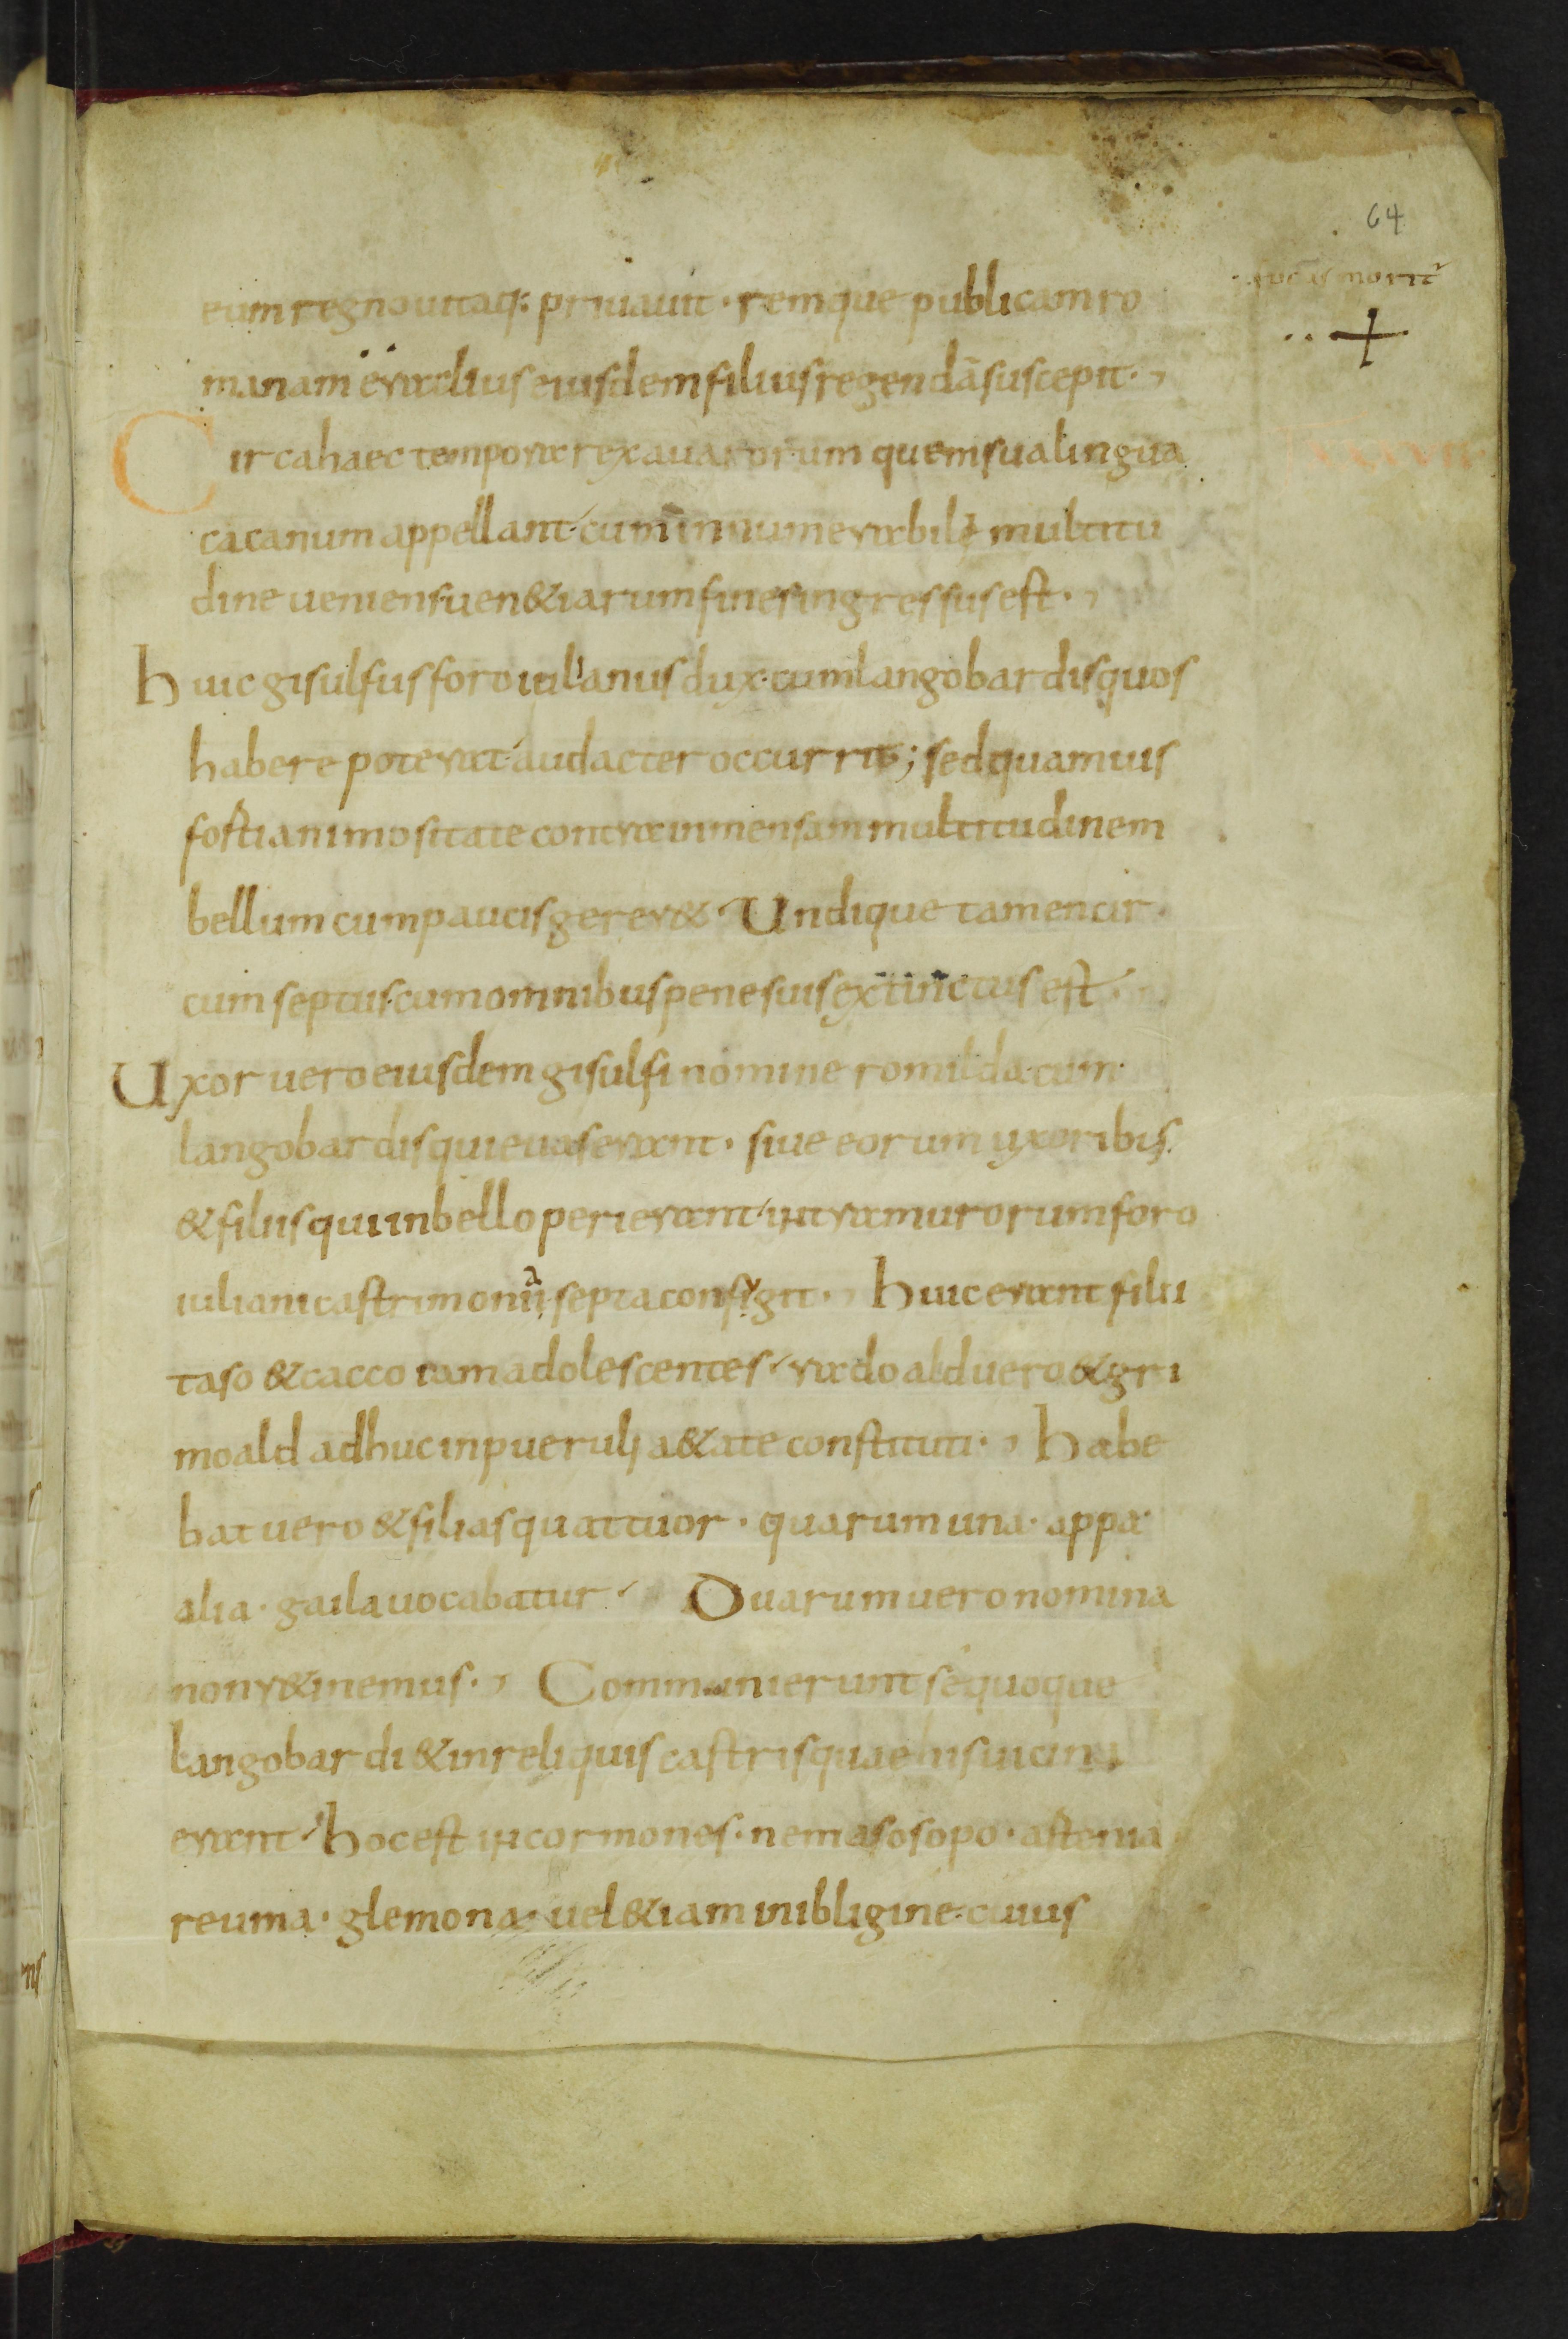 64
focas morit᷑
eum regno uitaq: priuauit · remque publicam ro
manam eraclius eiusdem filius regendā suscepit ·,
Circa haec tempora rex auarorum quem sua lingua
cacanum appellant cum innumerabile multitu
dine ueniens uen&iarum fines ingressus est ·,
huic gisulfus foroiulianus dux · cum langobardis quos
habere poterat audacter occurrit; sed quamuis
fosti animositate contra inmensam multitudinem
bellum cum paucis gerer& · Undique tamen cir
cum septus · cum omnibus pene suis extinctus est ·
Uxor uero eiusdem gisulfi nomine romilda · cum
langobardis qui euaserant · siue eorum uxoribus
& filiis qui in bello perierant intra murorum foro
iuliani castri monii a septa confugit · huic erant filii
taso & cacco iam adolescentes radoald uero & gri
moald adhuc in puerili a&ate constituti ·, habe
bat uero & filias quattuor · quarum una · appa ·
alia · gaila uocabatur · Duarum uero nomina
non r&inemus ·, Communierunt se quoque
langobardi & in reliquis castris quae his uicina
erant · hoc est in cormones · nemas osopo · artenia
reuma · glemona · uel &iam in ibligine · cuius